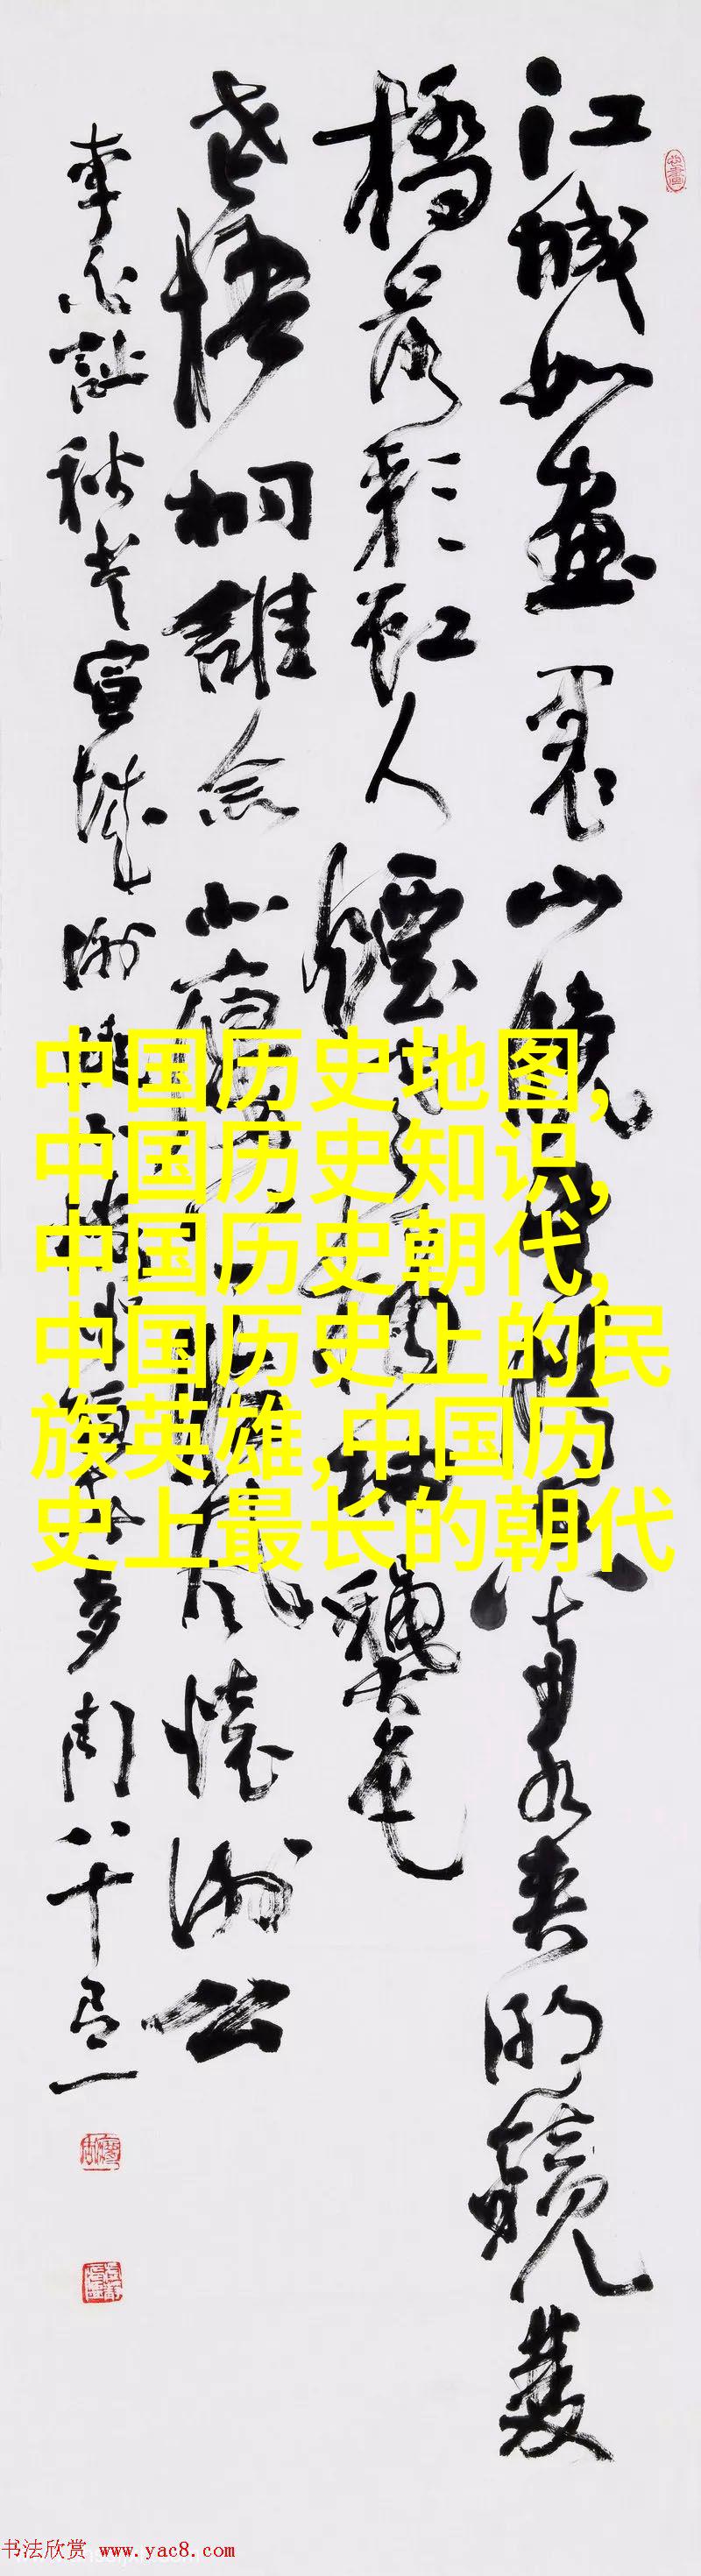 江城如畫裏山曉望晴空兩水夾明鏡雙
橋落彩虹人煙寒橘柚秋色
老梧桐誰念北樓上臨風懷謝公
李白詩秋登宣城謝朓北樓
中国历史地图,
中国历史知识,
中国历史朝代,
中国历史上的民
族英雄,中国历
史上最长的朝代
书法欣赏 www.yac8.com